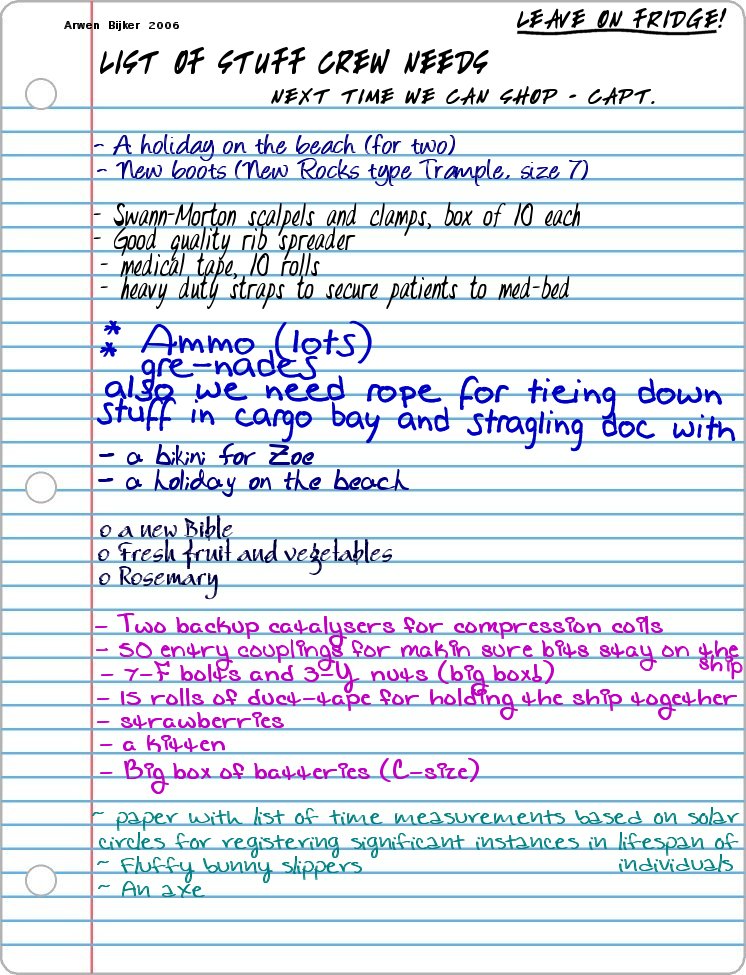 Arwen Bijker 2006
LEAVE ON FRIDGE!
LIST OF STUFF CREW NEEDS
NEXT TIME WE CAN SHOP - CAPT.
- A holiday on the beach (for two)
- New boots (New Rocks type Trample, size 7)
- Swann-Morton scalpels and clamps, box of 10 each
- Good quality rib spreader
- medical tape, 10 rolls
- heavy duty straps to secure patients to med-bed
*
* Ammo (lots)
gre-nades
also we need rope for tieing down
stuff in cargo bay and stragling doc with
- a bikini for Zoe
- a holiday on the beach
o a new Bible
o Fresh fruit and vegetables
o Rosemary
- Two backup catalysers for compression coils
- 50 entry couplings for makin sure bits stay on the
ship
- 7-F bolts and 3-Y nuts (big box!)
- 15 rolls of duct-tape for holding the ship together
- strawberries
- a kitten
- Big box of batteries (C-size)
~ paper with list of time measurements based on solar
circles for registering significant instances in lifespan of
individuals
~ Fluffy bunny slippers
~ An axe